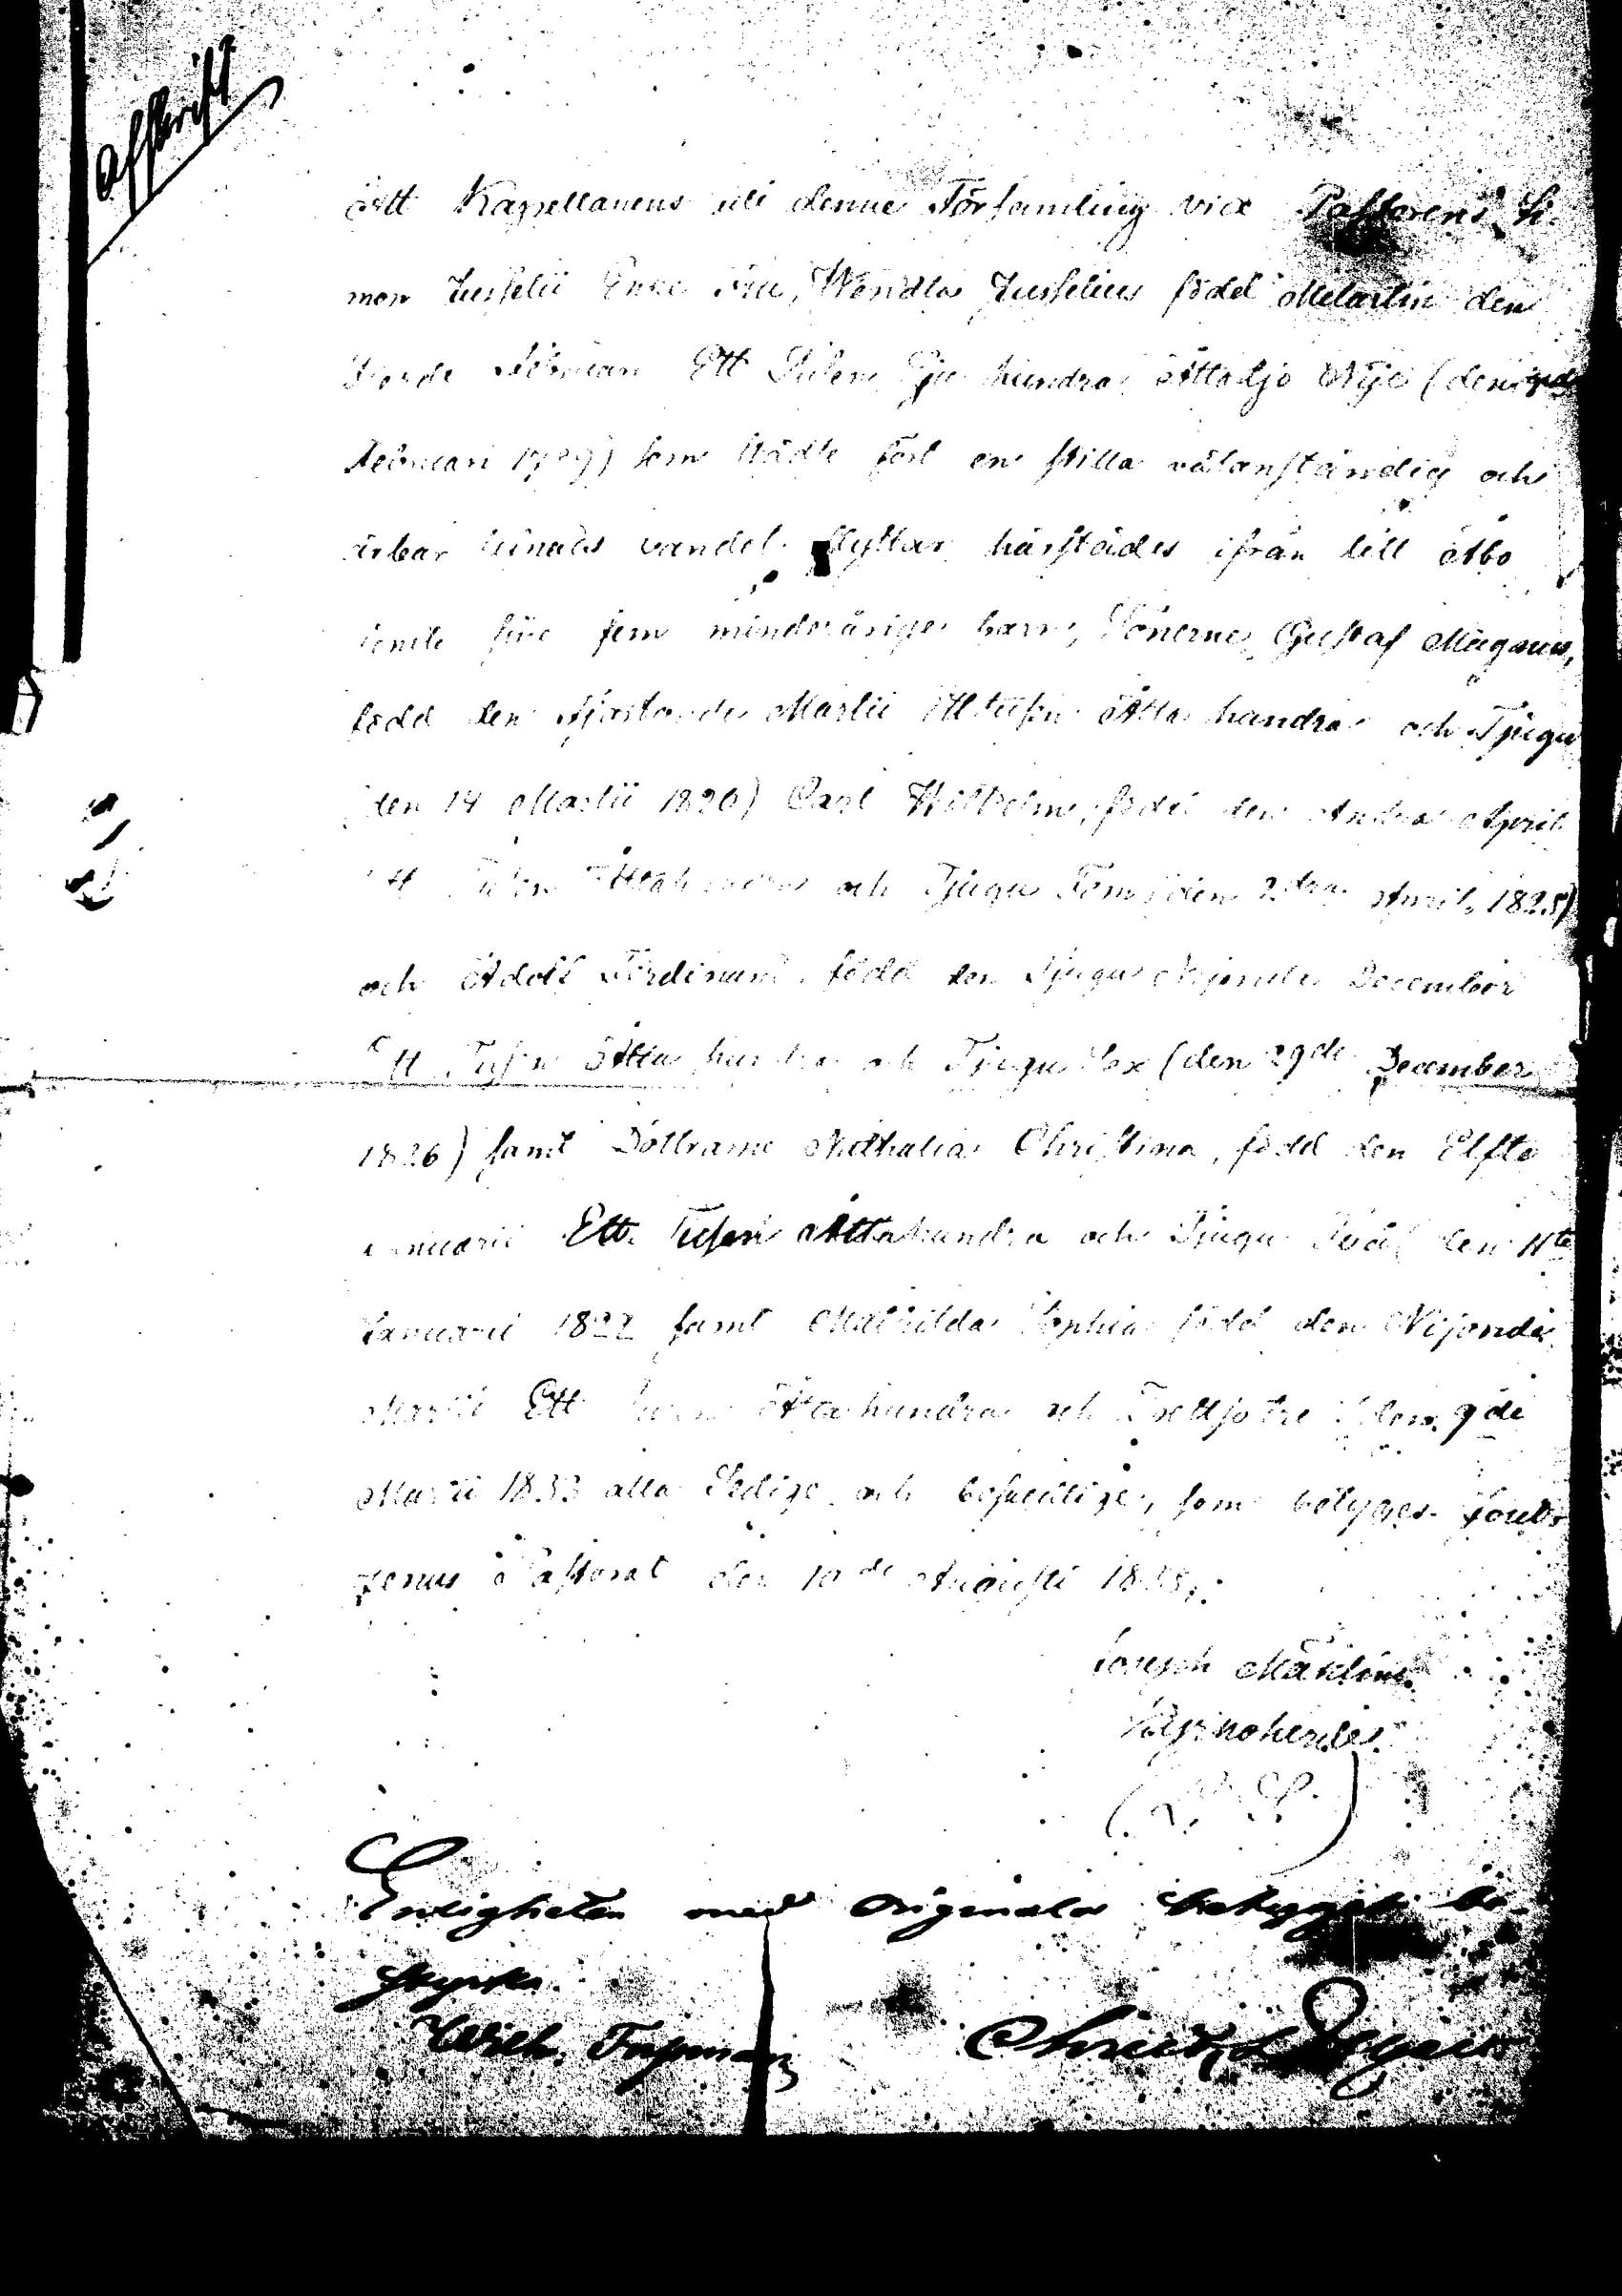 Afskrift
Att Kapellanens uti denne Församling vice Pastorens Si-
mon Juselii Enke Fru Wendla Juselius född Melartin den
Februari Ett Tusen Sju hundra Åttatijo Nije (den
Februari 1789) som städse fört en stilla välanständig och
ärbar lefnads vandel, flyttar härstädes ifrån till Åbo
jemte sine fem minderårige barn, Sönerne Gustaf Magnus,
född den fjortonde Martii Ett tusen Åtta hundra och Tjugu
(den 14 Martii 1820) Carl Wilhelm, född den Andra April
Ett Tusen Åttahundra och Tjugu Fem (den 2dra April 1825)
och Adolf Ferdinand, född den Tjugu Nijonde December
Ett Tusen Åtta hundra och Tjugu Sex (den 29de December
1826) samt Döttrarne Nathalia Christina, född den Elfte
Januarii Ett Tusen Åttahundra och Tjugu Två (den 11te
Januarii 1822 samt Mathilda Sophia född den Nijonde
Martii Ett Tusen Åtta hundra och Trettjo tre (den 9de
Martii 1833 alla Ledige och beskedlige, som betyges.
Pastorat den 10de Augusti 18
Joseph
Kyrkoherde
(L. S.)
Enligheten med Originala betyget be-
styrka
Wilh.